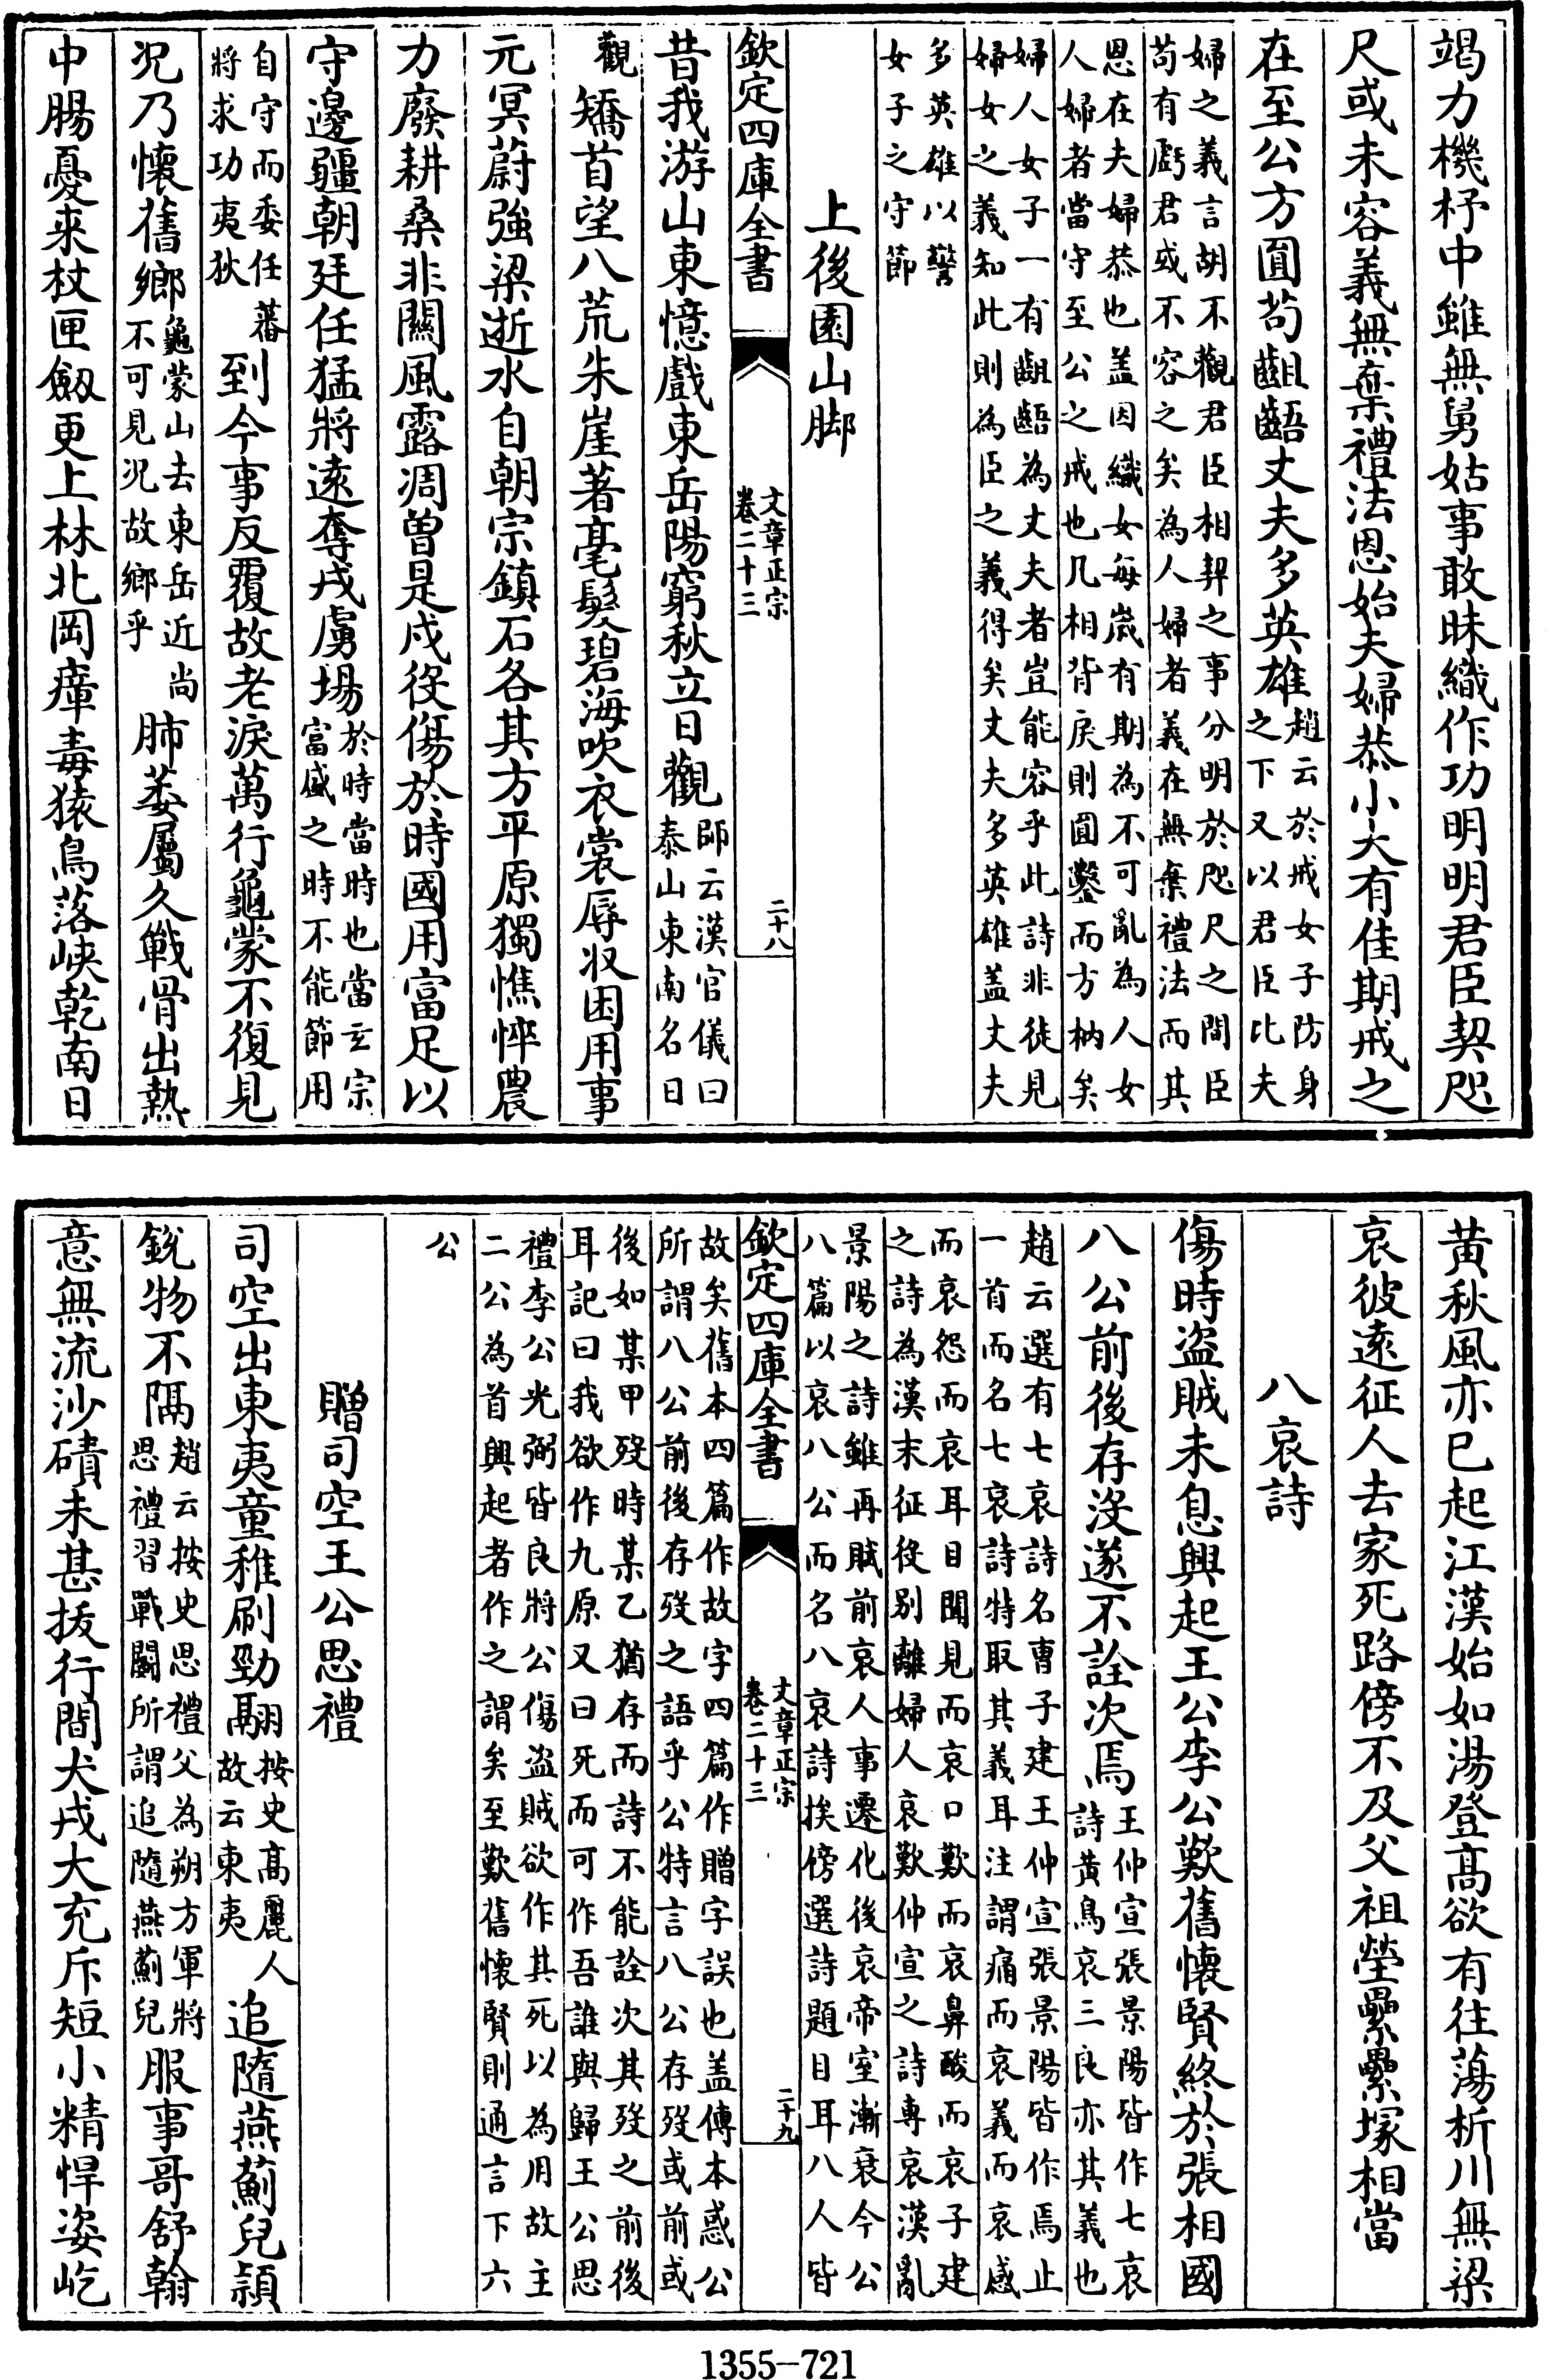 竭力機杼中雖無舅姑事敢昧織作功明明君臣契咫
尺或未容義無棄禮法恩始夫婦恭小大有佳期戒之
在至公方圓茍齟齬丈夫多英雄趙云於戒女子防身
之下又以君臣比夫
婦之義言胡不觀君臣相契之事分明於咫尺之間臣
茍有虧君或不容之矣為人婦者義在無棄禮法而其
恩在夫婦恭也盖因織女每嵗有期為不可亂為人女
人婦者當守至公之戒也几相背戾則圓鑿而方枘矣
婦人女子一有齟齬為丈夫者豈能容乎此詩非徒見
婦女之義知此則為臣之義得矣丈夫多英雄盖丈夫
多英雄以警
女子之守節
上後園山脚
欽定四庫全書
文章正宗
卷二十三
二十八
昔我游山東憶戲東岳陽窮秋立日觀師云漢官儀曰
泰山東南名日
觀
矯首望八荒朱崖著毫髮碧海吹衣裳辱收困用事
元冥蔚強梁逝水自朝宗鎮石各其方平原獨憔悴農
力廢耕桑非關風露凋曽是戍役傷於時國用富足以
守邊疆朝廷任猛將逺奪戎虜場於時當時也當𤣥宗
富盛之時時不能節用
自守而委任蕃
將求功夷狄
到今事反覆故老淚萬行龜蒙不復見
况乃懷舊鄉龜蒙山去東岳近尚
不可見况故鄉乎
肺萎屬久戰骨出熱
中腸憂來杖匣劔更上林北岡瘴毒猿鳥落峽乾南日
黃秋風亦已起江漢始如湯登高欲有往蕩析川無梁
哀彼逺征人去家死路傍不及父祖塋纍纍塚相當
八哀詩
傷時盜賊未息興起王公李公歎舊懷賢終於張相國
八公前後存沒遂不詮次焉王仲宣張景陽皆作七哀
詩黃鳥哀三良亦其義也
趙云選有七哀詩名曹子建王仲宣張景陽皆作焉止
一首而名七哀詩特取其義耳注謂痛而哀義而哀感
而哀怨而哀耳目聞見而哀口歎而哀鼻酸而哀子建
之詩為漢末征役别離婦人哀歎仲宣之詩專哀漢亂
景陽之詩雖再賦前哀人事遷化後哀帝室漸衰今公
八篇以哀八公而名八哀詩挨傍選詩題目耳八人皆
欽定四庫全書
文章正宗
卷二十三
二十九
故矣舊本四篇作故字四篇作贈字誤也盖傳本惑公
所謂八公前後存歿之語乎公特言八公存歿或前或
後如某甲歿時某乙猶存而詩不能詮次其歿之前後
耳記曰我欲作九原又曰死而可作吾誰與歸王公思
禮李公光弼皆良將公傷盜賊欲作其死以為用故主
二公為首興起者作之謂矣至歎舊懷賢則通言下六
公
贈司空王公思禮
司空出東夷童稚刷勁翮按史高麗人
故云東夷
追隨燕薊兒頴
銳物不隔趙云按史思禮父為朔方軍將
思禮習戰鬬所謂追隨燕薊兒
服事哥舒翰
意無流沙磧未甚拔行間犬戎大充斥短小精悍姿屹
1355-721